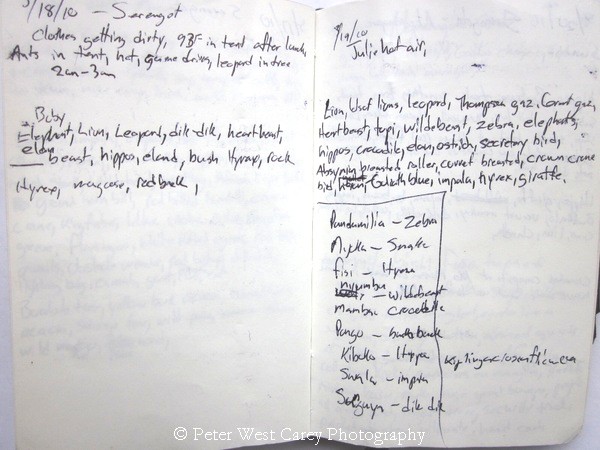 /18/10 – Serengat
Clothes getting dirty, 9BF in tent after lunch,
Ants in tent, hot, game drives, leopard in tree
2am - 3am
Baby
Elephant, Lion, Leopard, dik-dik, heartbeast,
elan
beast, hippos, eland, bush Hyrax, rock
Hyrex, redback,
/19/10
Julie hot air,
Lion, lions, leopard, Thompson gaz, Grant gaz,
Heartbeast, topi, wildebeast, zebra, elephants,
hippos, crocodile, elan, ostrich, secretary bird,
breasted roller, breasted, crown crane
bird, Goliath blue, impala, hyrex, giraffe.
Pundamilia – Zebra
– Snake
fisi – Hyena
nyumbu
– wildebeast
mamba crocodile
Pango –
Kiboko – Hippo
Swala – impala
– dik dik
© Peter West Carey Photography